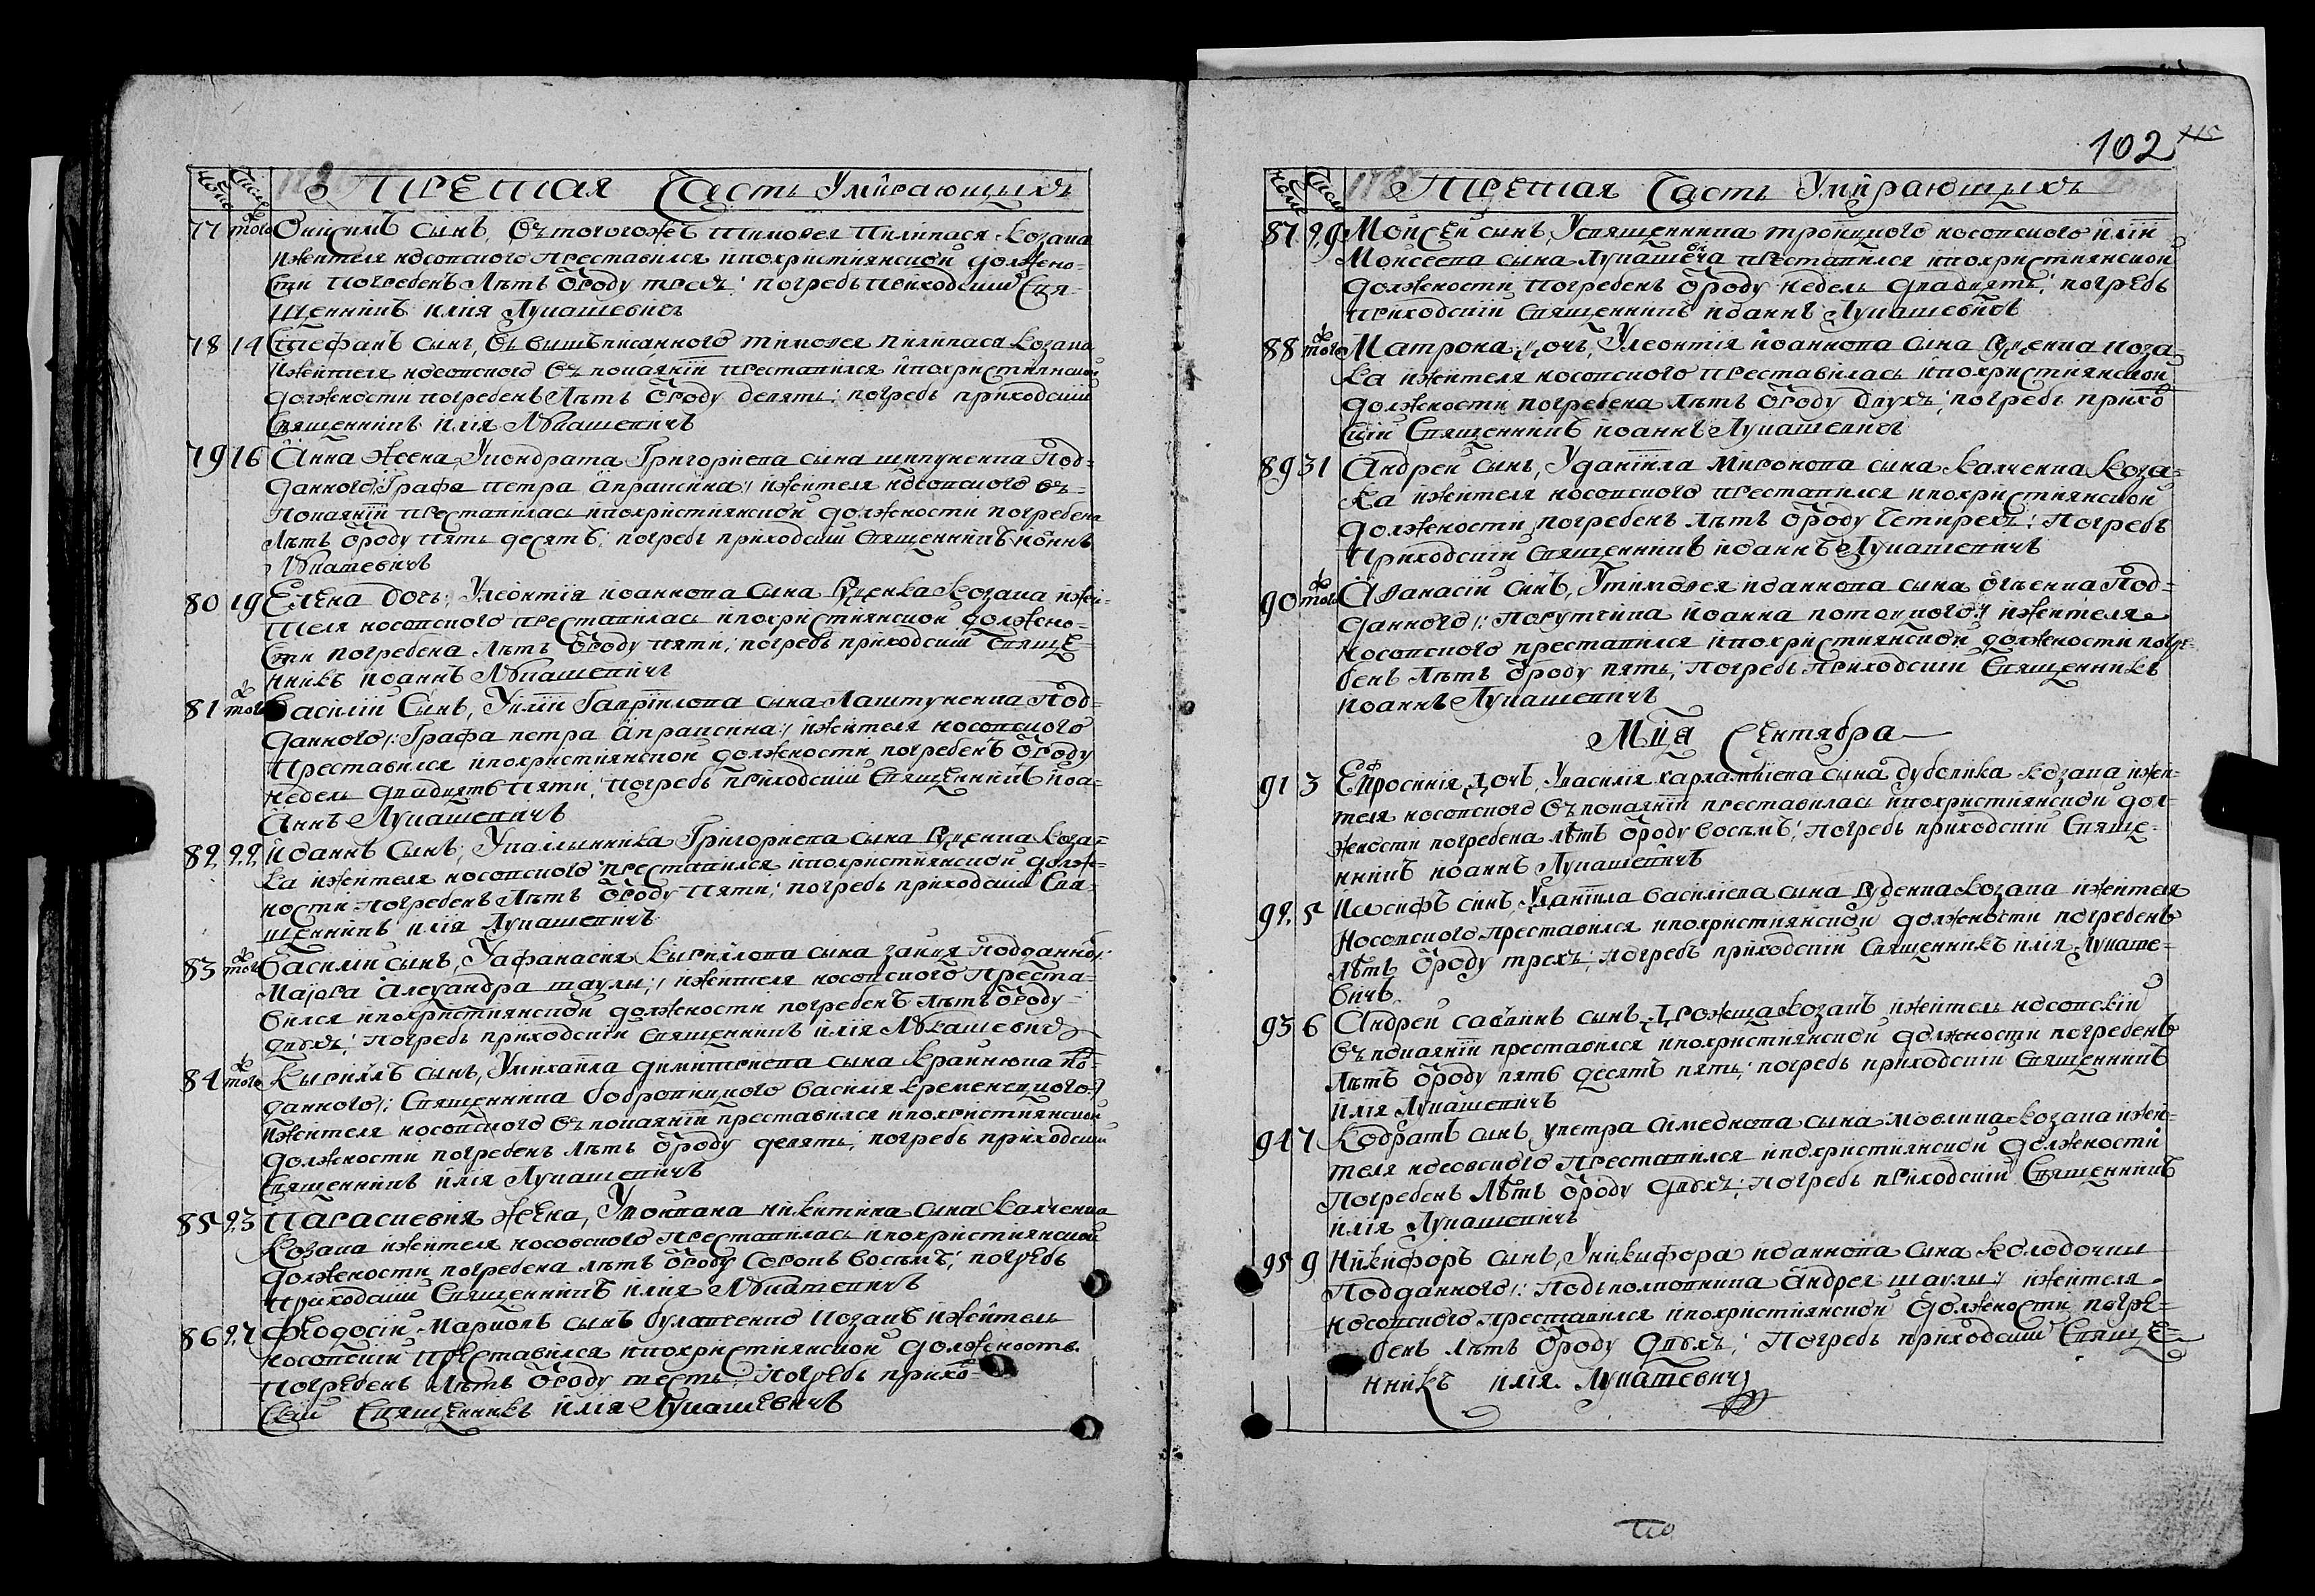 Третая Часть Умирающыхъ
77 того Онисимъ сынъ, отъ тогогожъ Тимофея Пилипася козака
и жителя носовского преставился и по християнской должно-
сти погребенъ лѣтъ ѿ роду трехъ; погребъ приходский свя-
щенникъ Илия Лукашевичъ
78 14 Стефанъ сынъ, от вышъписанного Тимофея Пилипася козака
и жителя носовского отъ покаянїи преставился и по християнской
должности погребенъ лѣтъ ѿ роду девять; погребъ приходский
священникъ Илия Лукашевичъ
79 16 Анна жена, У Кондрата Григориева сына под-
данного /: Графа Петра Апраксина :/ и жителя носовского отъ
покаянїи преставилась и по християнской должности погребена
лѣтъ ѿ роду пять десятъ; погребъ приходский священникъ Иоаннъ
Лукашевичъ
80 19 Елена дочь, У Леонтия Иоаннова сына Руденка козака и жи-
теля носовского преставилась и по християнской должно-
сти погребена лѣтъ ѿ роду пяти; погребъ приходский свяще-
нникъ Иоаннъ Лукашевичъ
81 того Василий сынъ, У Илїи Гаврїилова сына Лаштункенка под-
данного /: Графа Петра Апраксина :/ и жителя носовского
преставился и по християнской должности погребенъ ѿ роду
недель двадцять пяти; погребъ приходский священникъ Иоа-
аннъ Лукашевичъ
82 22 Иоаннъ сынъ, У Каллынника Григориева сына Руденка коза-
ка и жителя носовского преставился и по християнской долж-
ности погребенъ лѣтъ ѿ роду пяти; погребъ приходский свя-
щенникъ Илия Лукашевичъ
83 того Василий сынъ, У Афанасия Кырилова сына Заиця подданного /:
Маїора Александра Шаулы :/ и жителя носовского преста-
вился и по християнской должности погребенъ лѣтъ ѿ роду
двухъ; погребъ приходский священникъ Илия Лукашевичъ
84 того Кырилъ сынъ, У Михаила Димитриева сына Крайнюка по-
данного /: Священника Василия Кременецкого :/
и жителя носовского отъ покаянїи преставился и по християнской
должности погребенъ лѣтъ ѿ роду девять; погребъ приходский
священникъ Илия Лукашевичъ
85 23 Параскевия жена, Никитина сына Калченка
козака и жителя носовского преставилась и по християнской
должности погребена лѣтъ ѿ роду сорокъ восьмъ; погребъ
приходский священникъ Илия Лукашевичъ
86 27 Феодосий Марковъ сынъ козакъ и житель
носовский преставился и по християнской должность
погребенъ лѣтъ ѿ роду шесть; погребъ прихо-
ский священникъ Илия Лукашевичъ
102
Третая Часть Умирающыхъ
87 29 Моисей сынъ, У священника троицкого носовского Илїи
Моисеева сына Лукашевича преставился и по християнской
должности погребенъ ѿ роду недель двадцять; погребъ
приходский священникъ Иоаннъ Лукашевичъ
88 того Матрона дочь, У Леонтия Иоаннова сына Руденка коза-
ка и жителя носовского преставилась и по християнской
должности погребена лѣтъ ѿ роду двухъ; погребъ прихо-
ский священникъ Иоаннъ Лукашевичъ
89 31 Андрей сынъ, У Данїила Миронова сына Калченка коза-
ка и жителя носовского преставился и по християнской
должности погребенъ лѣтъ ѿ роду четирехъ; погребъ
приходский священникъ Иоаннъ Лукашевичъ
90 того Афанасий синъ, У Тимофея Иоаннова сына под-
данного /: Порутчика Иоанна Потоцкого :/ и жителя
носовского преставился и по християнской должности погре-
бенъ лѣтъ ѿ роду пять; погребъ приходский священникъ
Иоаннъ Лукашевичъ
Мца Сентября
91 3 Ефросиния дочь, У Василия Харлампиева сына Дубовика козака и жи-
теля носовского отъ покаянїи преставилась и по християнской дол-
жности погребена лѣтъ ѿ роду восьмъ; погребъ приходский свяще-
нникъ Иоаннъ Лукашевичъ
92 5 Иосифъ синъ, У Данїила Василїева сына Руденка козака и жителя
носовского преставился и по християнской должности погребенъ
лѣтъ ѿ роду трехъ; погребъ приходский священникъ Илия Лукаше-
вичъ
93 6 Андрей Саввинъ сынъ Дрожща козакъ и житель носовский
отъ покаянїи преставился и по християнской должности погребенъ
лѣтъ ѿ роду пять десятъ пять; погребъ приходский священникъ
Илия Лукашевичъ
94 7 Кодратъ синъ, У Петра Симеонова сына козака и жи-
теля носовского преставился и по християнской должности
погребенъ лѣтъ ѿ роду двухъ; погребъ приходский священникъ
Илия Лукашевичъ
95 9 Никифоръ синъ, У Никифора Иоаннова сына Колодочки
подданного /: Подъполковника Андрея Шаулы :/ и жителя
носовского преставился и по християнской должности погре-
бенъ лѣтъ ѿ роду двухъ; погребъ приходский свяще-
нникъ Илия Лукашевичъ